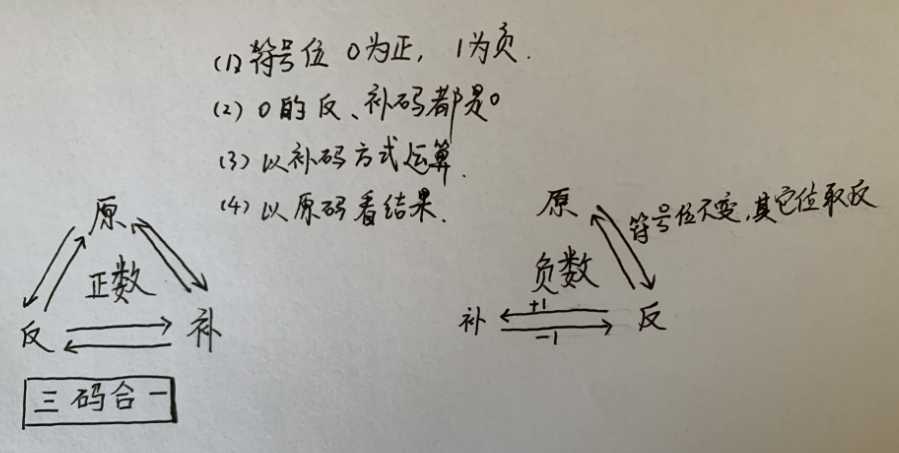 (1) 符号位 0为正, 1为负.
(2) 0的反、补码都是0
(3) 以补码方式运算.
(4) 以原码看结果.
原
正数
反
补
三码合一
原
符号位不变,其它位取反
负数
补
+1
-1
反